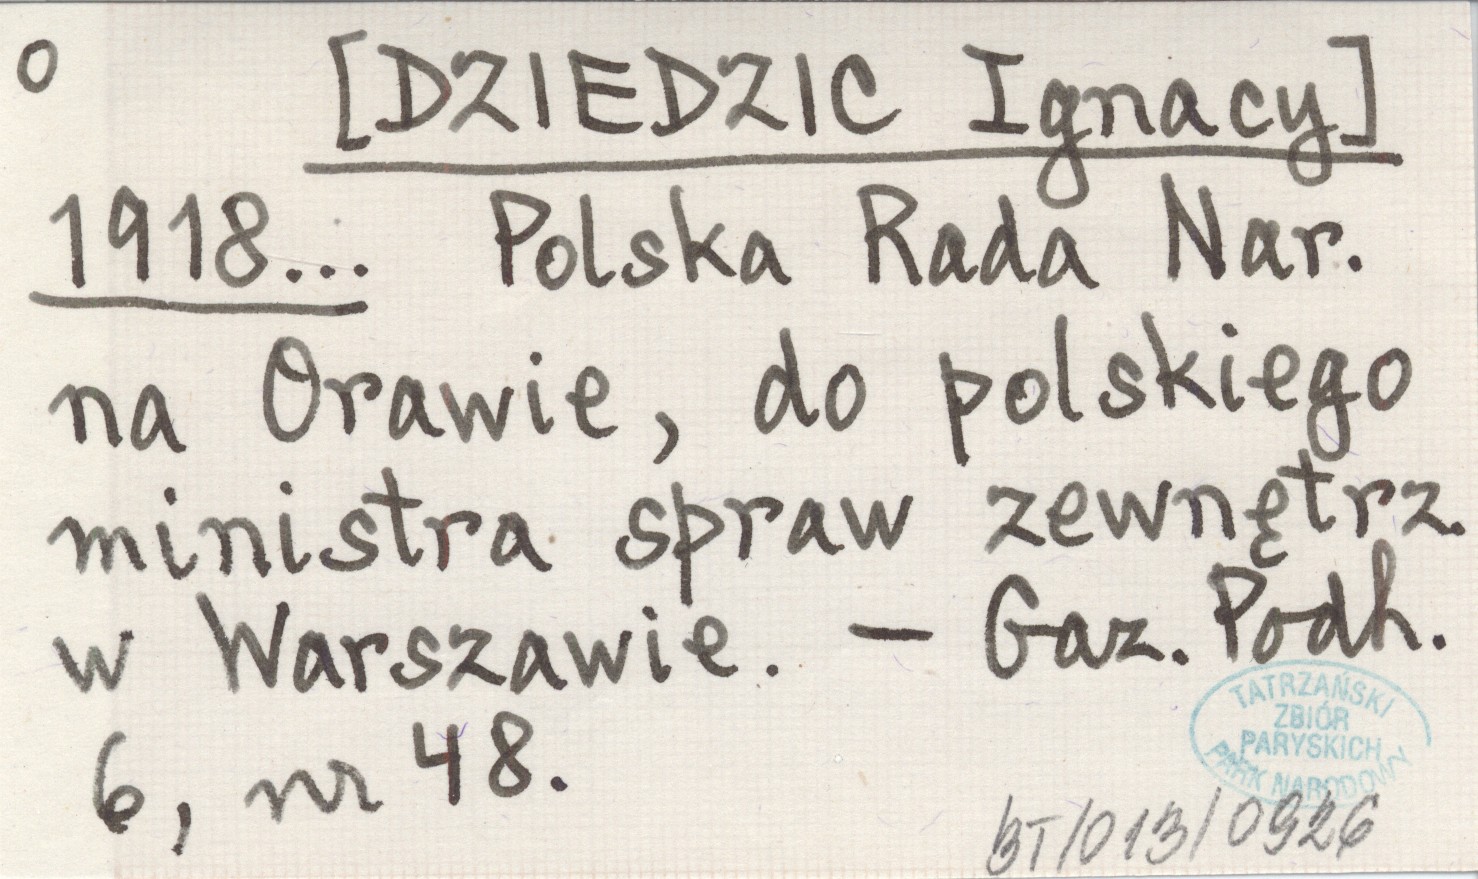 o [DZIEDZIC Ignacy]
1918... Polska Rada Nar.
na Orawie, do polskiego
ministra spraw zewnętrz.
w Warszawie. — Gaz. Podh.
6, nr 48.
TATRZAŃSKI
ZBIÓR
PARYSKICH
PARK NARODOWY
BT/013/0926